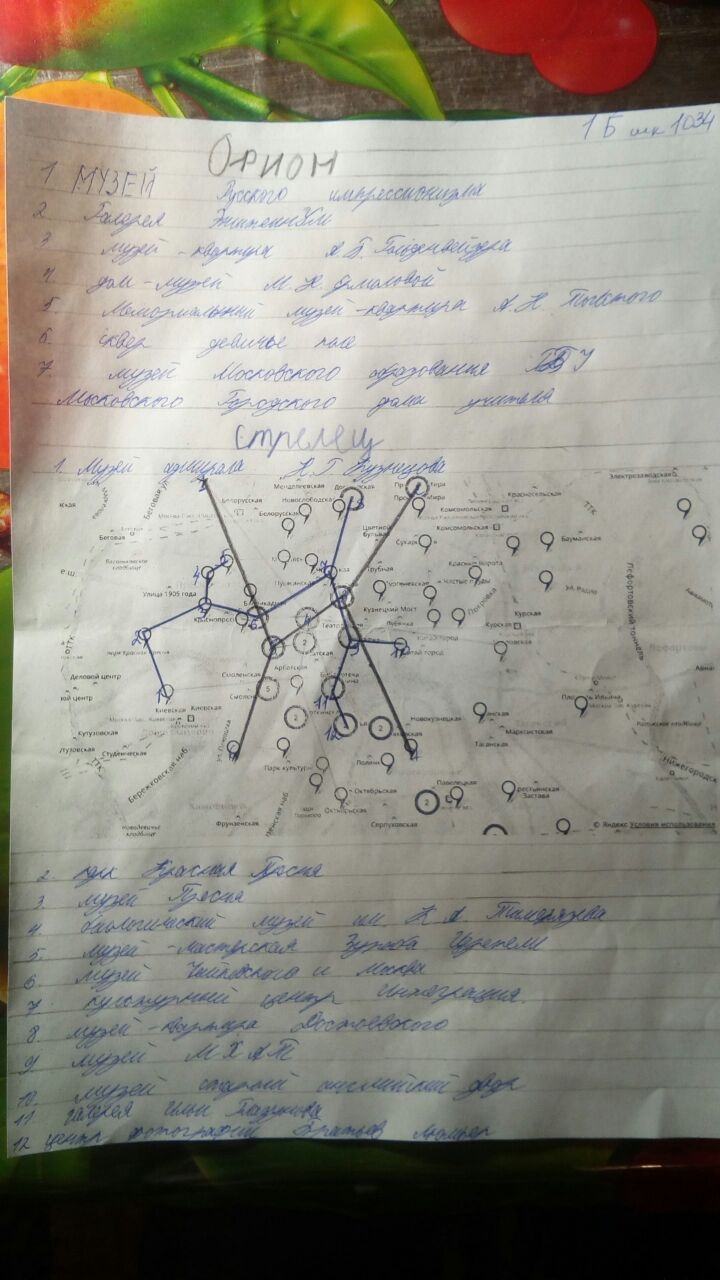 1 Б шк 1034
Орион
1 МУЗЕЙ Русского импрессионизма
2 Галерея
3 музей-квартира А.Б. Гольденвейзера
4 дом-музей М.Н. Ермоловой
5. Мемориальный музей-квартира А.Н. Толстого
6. сквер девичье поле
7. музей Московского образования
Московского Городского дома учителя
Стрелец
1. Музей адмирала Н.Г. Кузнецова
Менделеевская
Электрозаводская
Беговая ул
Белорусская
Новослободская
Красносельская
ТТК
Комсомольская
Беговая
Белорусская
Цветной бульвар
Комсомольская
Бауманская
Красные Ворота
Трубная
Пушкинская
Улица 1905 года
Чистые пруды
Кузнецкий Мост
Покровка
Лефортовский тоннель
Курская
Курская
Лубянка
Китай-город
ТТК
Смоленская
Арбатская
Деловой центр
Киевская
Киевская
Площадь Ильича
Новокузнецкая
Марксистская
Кутузовская
Студенческая
Таганская
Бережковская наб
ТТК
Парк культуры
Павелецкая
Октябрьская
Крестьянская Застава
Октябрьская
Фрунзенская
Серпуховская
© Яндекс Условия использования
2. Красная Пресня
3 музей Пресня
4 биологический музей им. К А. Тимирязева
5. музей-мастерская Зураба Церетели
6 музей Чайковского и Москва
7 культурный центр Интеграция.
8 музей-квартира Достоевского
9 музей МХАТ
10 музей старый английский двор
11 галерея Ильи Глазунова
12 центр фотографии Братьев Люмьер